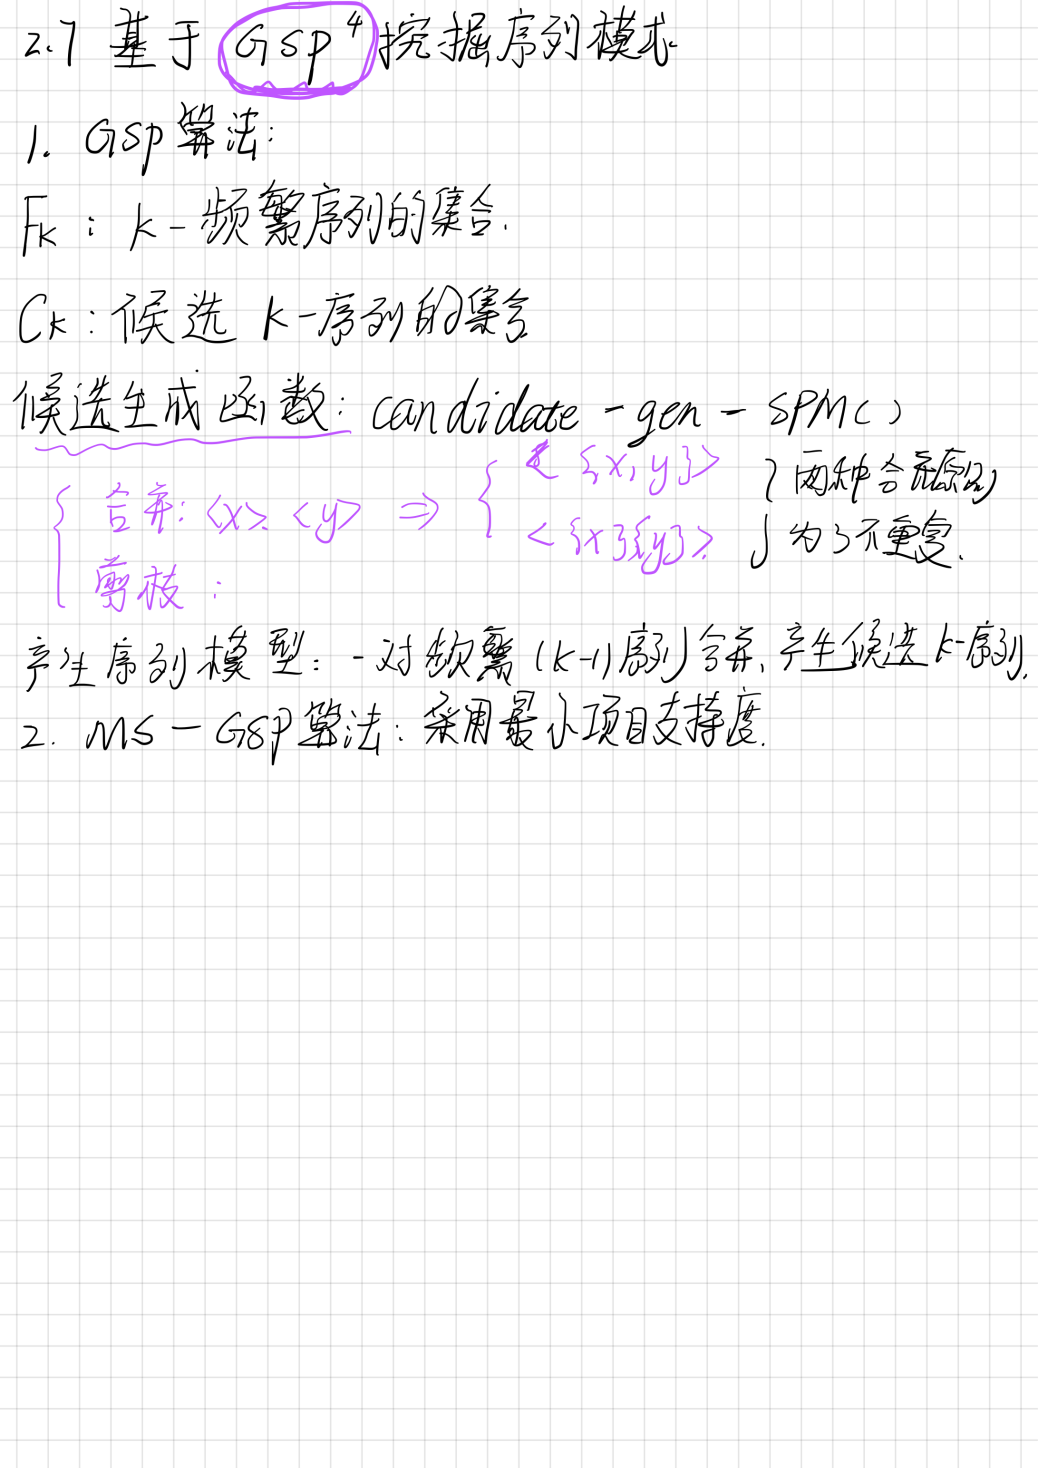 2.7 基于 GSP⁴ 挖掘序列模式
1. GSP 算法:
Fk : k-频繁序列的集合.
Ck : 候选 k-序列的集合
候选生成函数: candidate-gen-SPM()
合并: <x>. <y> ⇒ { < {x, y} >
< {x}{y} >.
} 两种合并原则
为了不重复.
剪枝 :
产生序列模型: 一对频繁 (k-1)序列合并、产生候选 k-序列.
2. MS-GSP算法: 采用最小项目支持度.